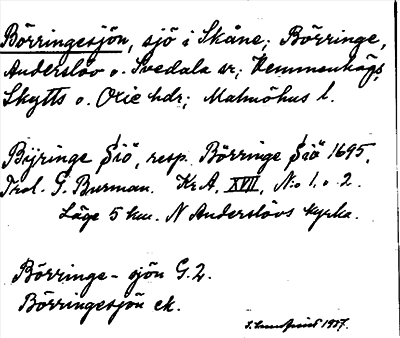 Börringesjön, sjö i Skåne; Börringe,
Anderslöv o. Svedala sr; Vemmenhögs,
Skytts o. Oxie hdr; Malmöhus l.
Byringe Siö, resp. Börringe Siö 1695.
G. Burman. Kr.A. XVII, N:o 1. o. 2.
Läge 5 km. N Anderslövs kyrka.
Börringe-sjön G.2.
Börringesjön ek.
1937.